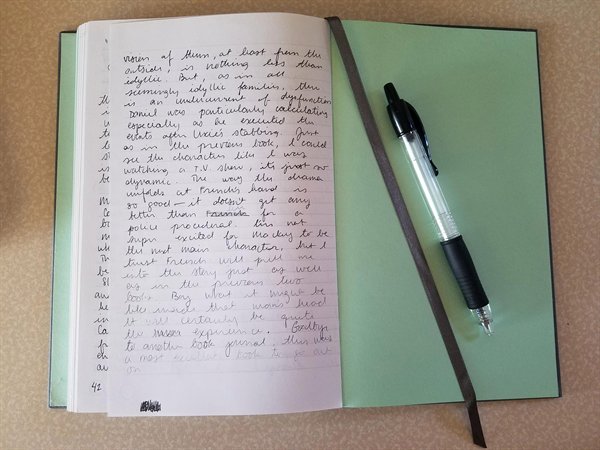 vision of them, at least from the
outside, is nothing less than
idyllic. But, as in all
seemingly idyllic families, there
is an undercurrent of dysfunction.
Daniel was particularly calculating
especially as he executed the
events after Lexie's stabbing. Just
as in the previous book, I could
see the characters like I was
watching a T.V. show, it's just so
dynamic. The way the drama
unfolds at French's hand is
so good — it doesn't get any
better than for a
police procedural. I'm not
super excited for Mackey to be
the next main character, but I
trust French will pull me
into the story just as well
as in the previous two
books. Boy what it might be
like inside that man's head
It will certainly be quite
the experience. Goodbye
to another book journal, this was
a most excellent book to go out
on
42